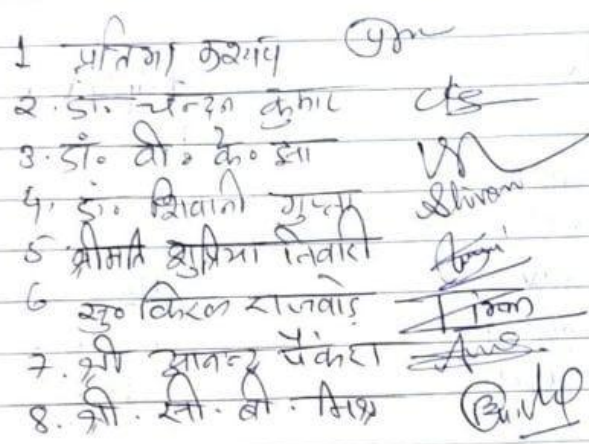 1 प्रतिमा कश्यप
2. डॉ. चन्दन कुमार
3. डॉ. वी. के. झा
4. डॉ. शिवानी गुप्ता Shivani
5 श्रीमति सुप्रिया तिवारी
6 सु० किरण राजवाड़े Kiran
7. श्री आनन्द पैंकरा
8. श्री. सी. बी. मिश्र